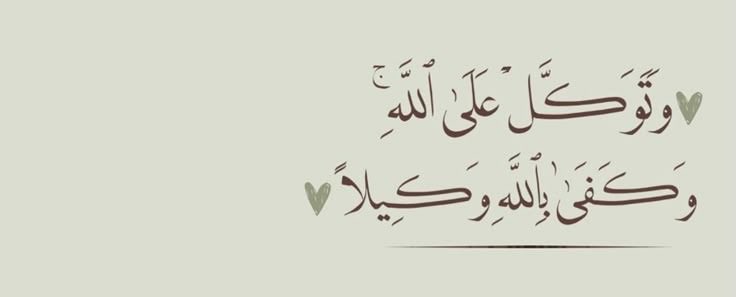 وَتَوَكَّلْ عَلَىٰ ٱللَّهِ ۚ
وَكَفَىٰ بِٱللَّهِ وَكِيلاً